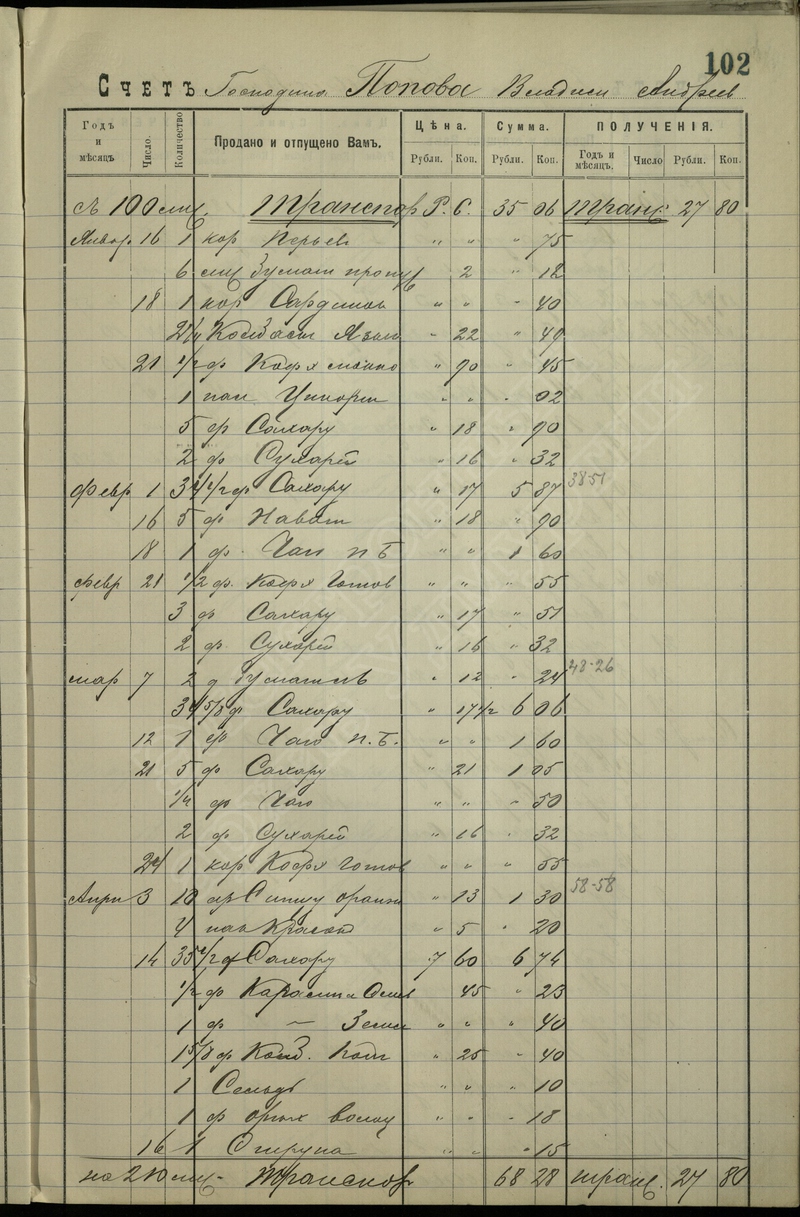 102
Счетъ Господина Попова Владим Андрев
Годъ и мѣсяцъ Число. Количество Продано и отпущено Вамъ. Цѣна. Рубли. Коп. Сумма. Рубли. Коп. ПОЛУЧЕНІЯ. Годъ и мѣсяцъ. Число Рубли. Коп.
100 Транспор Р. С. 35 06 Транс: 27 80
Январ 16 1 кор Перьев " " " 75
6 2 " 12
18 1 кор Сардинок " " - 40
2 1/4 Колбасы - 22 " 49
21 1/2 ф Кофя " 90 " 45
1 пач " " - 02
5 ф Сахару " 18 " 90
2 ф Сухарей " 16 " 32
февр 1 34 1/2 ф Сахару " 17 5 87 38-51
16 5 ф Нават " 18 " 90
18 1 ф. Чаю п Б " " 1 60
февр 21 1/2 ф. Кофя Готов " " " 55
3 ф Сахару " 17 " 51
2 ф. Сухарей " 16 " 32
мар 7 2 д " 12 " 24 48-26
34 5/8 ф Сахару " 17 1/2 6 06
12 1 ф Чаю п. Б. " " 1 60
21 5 ф Сахару " 21 1 05
1/4 ф Чаю " " - 50
2 ф Сухарей " 16 . 32
24 1 кор Кофя готов " " " 55
Апри 3 10 ар Ситцу " 13 1 30 58-58
4 пак Красок " 5 " 20
14 35 1/2 ф Сахару 7 60 6 74
1/2 ф 45 " 23
1 ф — " " " 40
1 5/8 ф Колб. " 25 - 40
1 Сельдь " " " 10
1 ф орех " - - 18
16 1 " " " 15
на 210 Транспор 68 28 транс. 27 80